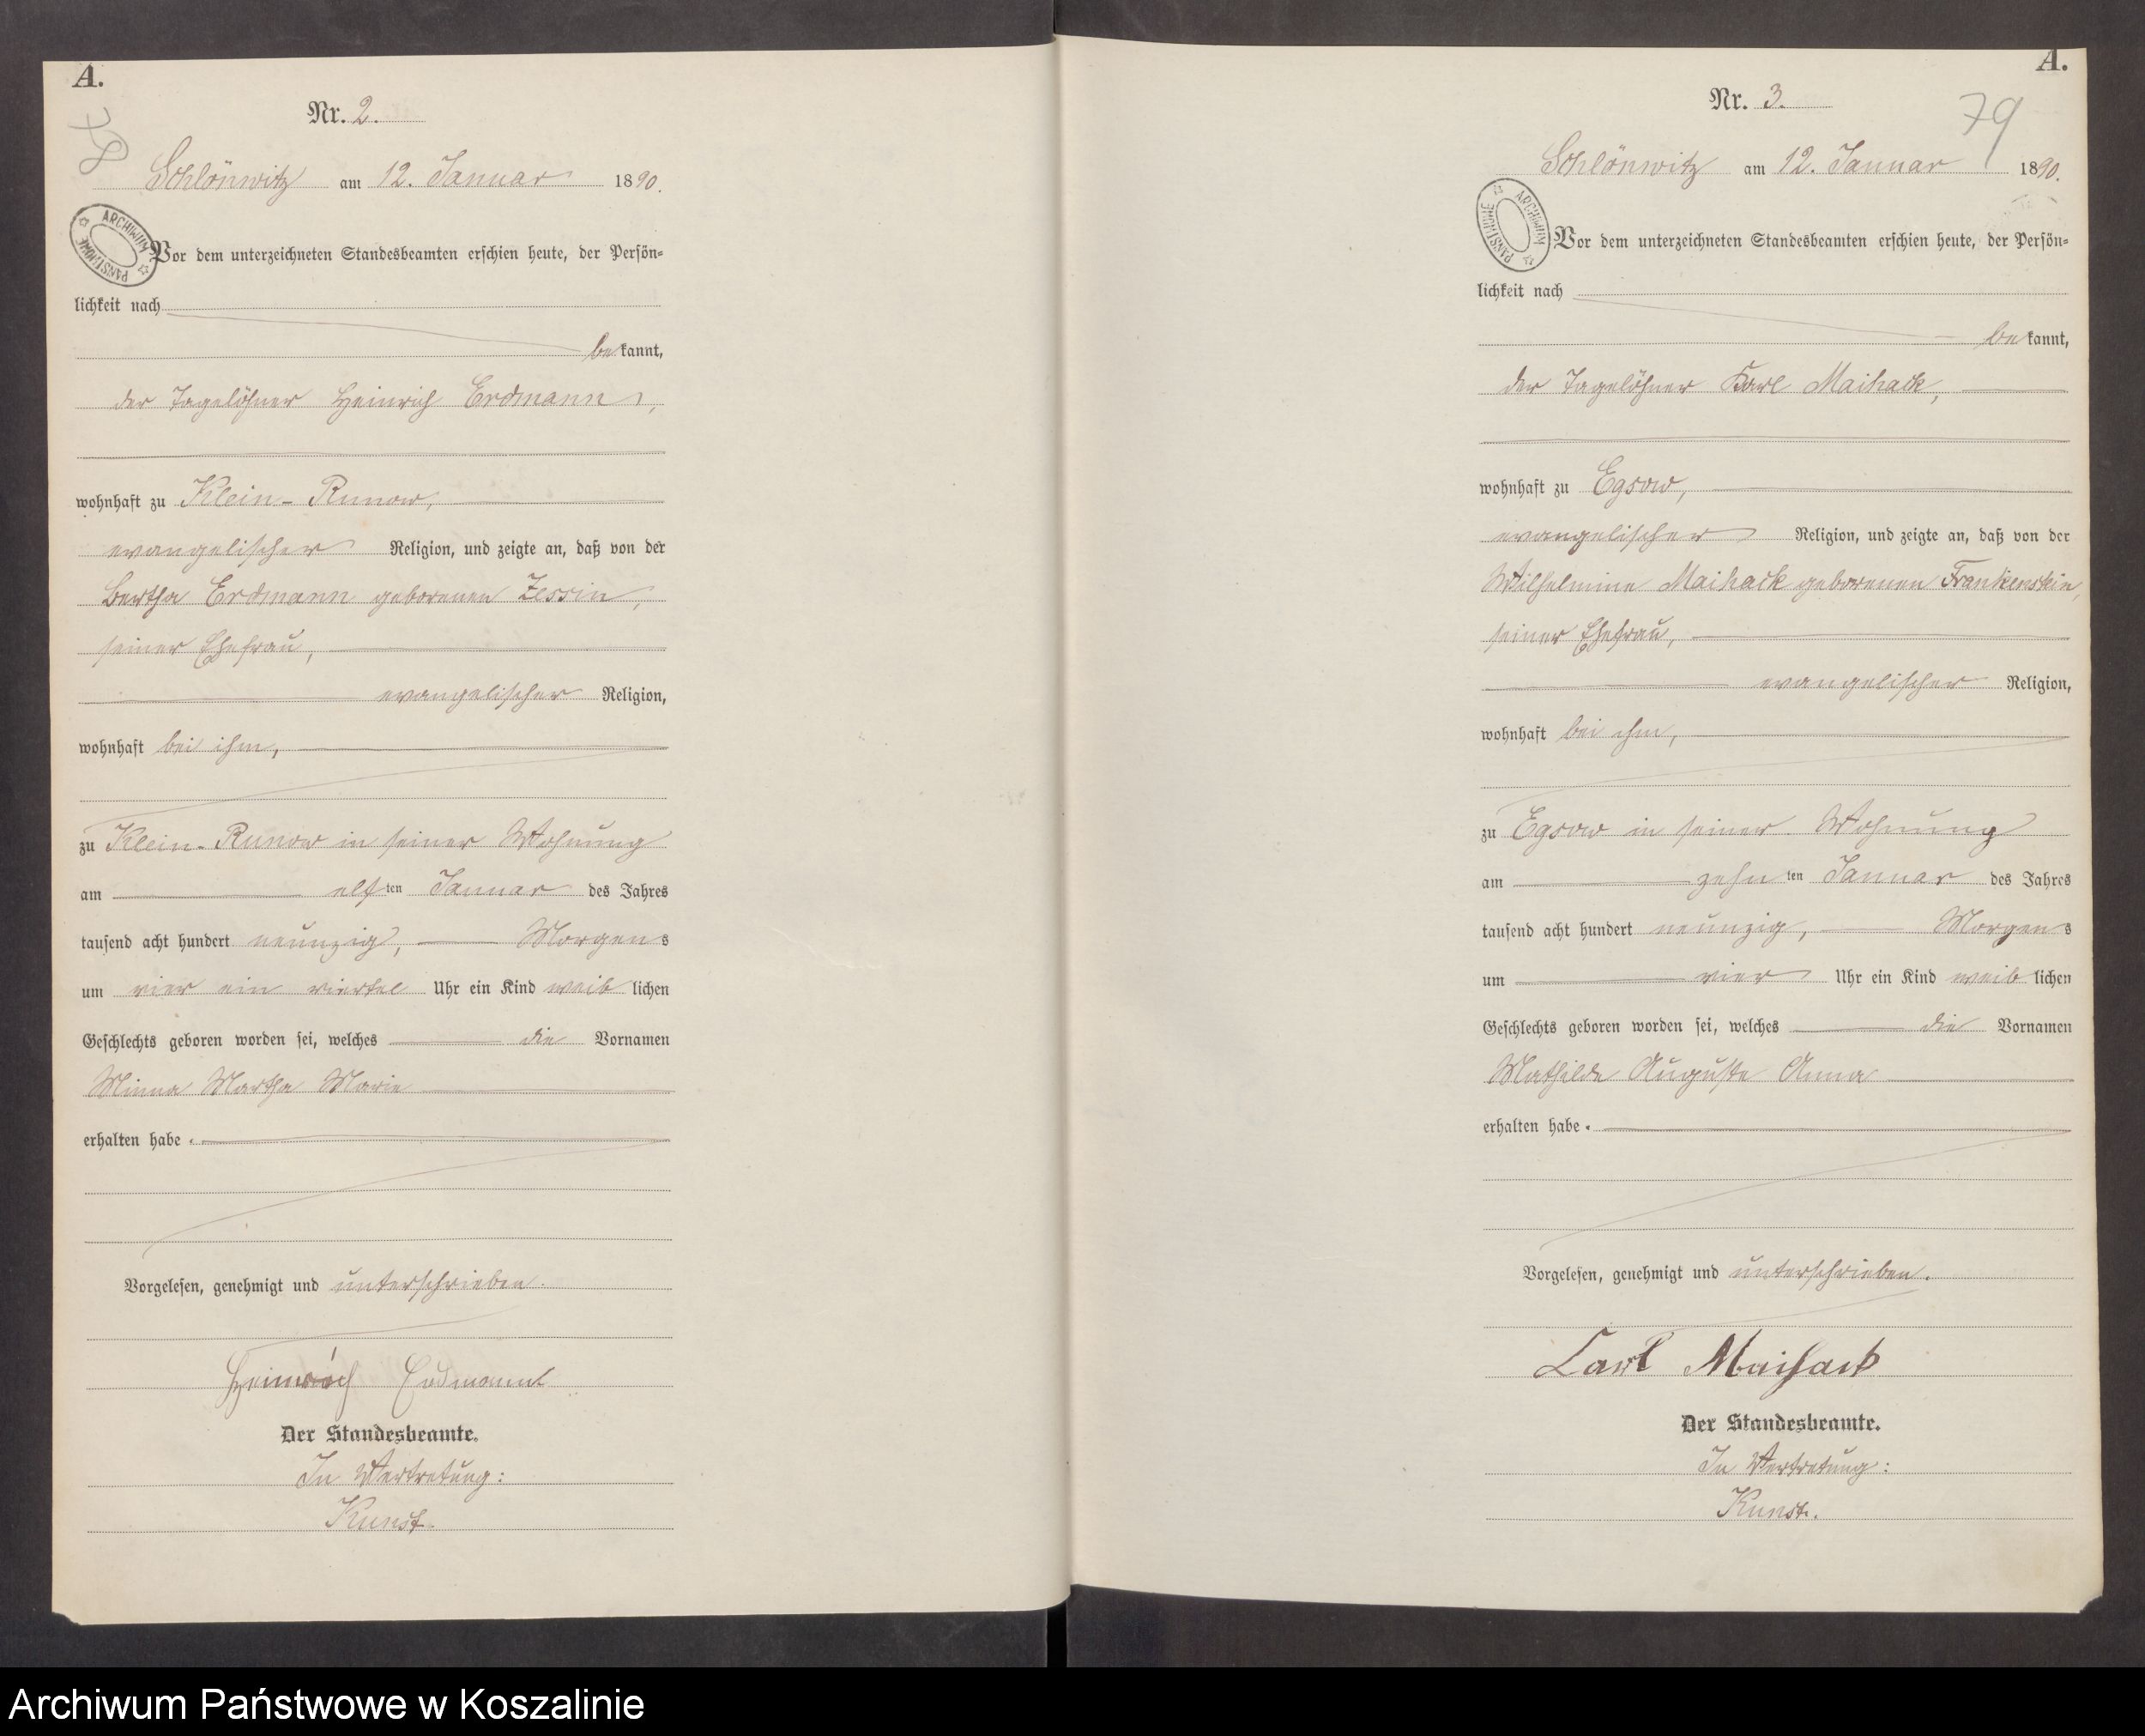 A.
Nr. 2.
78
Schlönwitz am 12. Januar 1890.
ARCHIWUM PAŃSTWOWE
Vor dem unterzeichneten Standesbeamten erschien heute, der Persön-
lichkeit nach
be kannt,
der Tagelöhner Heinrich Erdmann,
wohnhaft zu Klein-Runow,
evangelischer Religion, und zeigte an, daß von der
Bertha Erdmann geborenen Zessin,
seiner Ehefrau,
evangelischer Religion,
wohnhaft bei ihm,
zu Klein-Runow in seiner Wohnung
am elf ten Januar des Jahres
tausend acht hundert neunzig, Morgens
um vier ein viertel Uhr ein Kind weib lichen
Geschlechts geboren worden sei, welches die Vornamen
Minna Martha Marie
erhalten habe.
Vorgelesen, genehmigt und unterschrieben.
Heinrich Erdmann
Der Standesbeamte.
In Vertretung:
Kunst.
A.
Nr. 3.
79
Schlönwitz am 12. Januar 1890.
ARCHIWUM PAŃSTWOWE
Vor dem unterzeichneten Standesbeamten erschien heute, der Persön-
lichkeit nach
be kannt,
der Tagelöhner Karl Maihack,
wohnhaft zu Egsow,
evangelischer Religion, und zeigte an, daß von der
Wilhelmine Maihack geborenen Frankenstein,
seiner Ehefrau,
evangelischer Religion,
wohnhaft bei ihm,
zu Egsow in seiner Wohnung
am zehn ten Januar des Jahres
tausend acht hundert neunzig, Morgens
um vier Uhr ein Kind weib lichen
Geschlechts geboren worden sei, welches die Vornamen
Mathilde Auguste Anna
erhalten habe.
Vorgelesen, genehmigt und unterschrieben.
Carl Maihack
Der Standesbeamte.
In Vertretung:
Kunst.
Archiwum Państwowe w Koszalinie